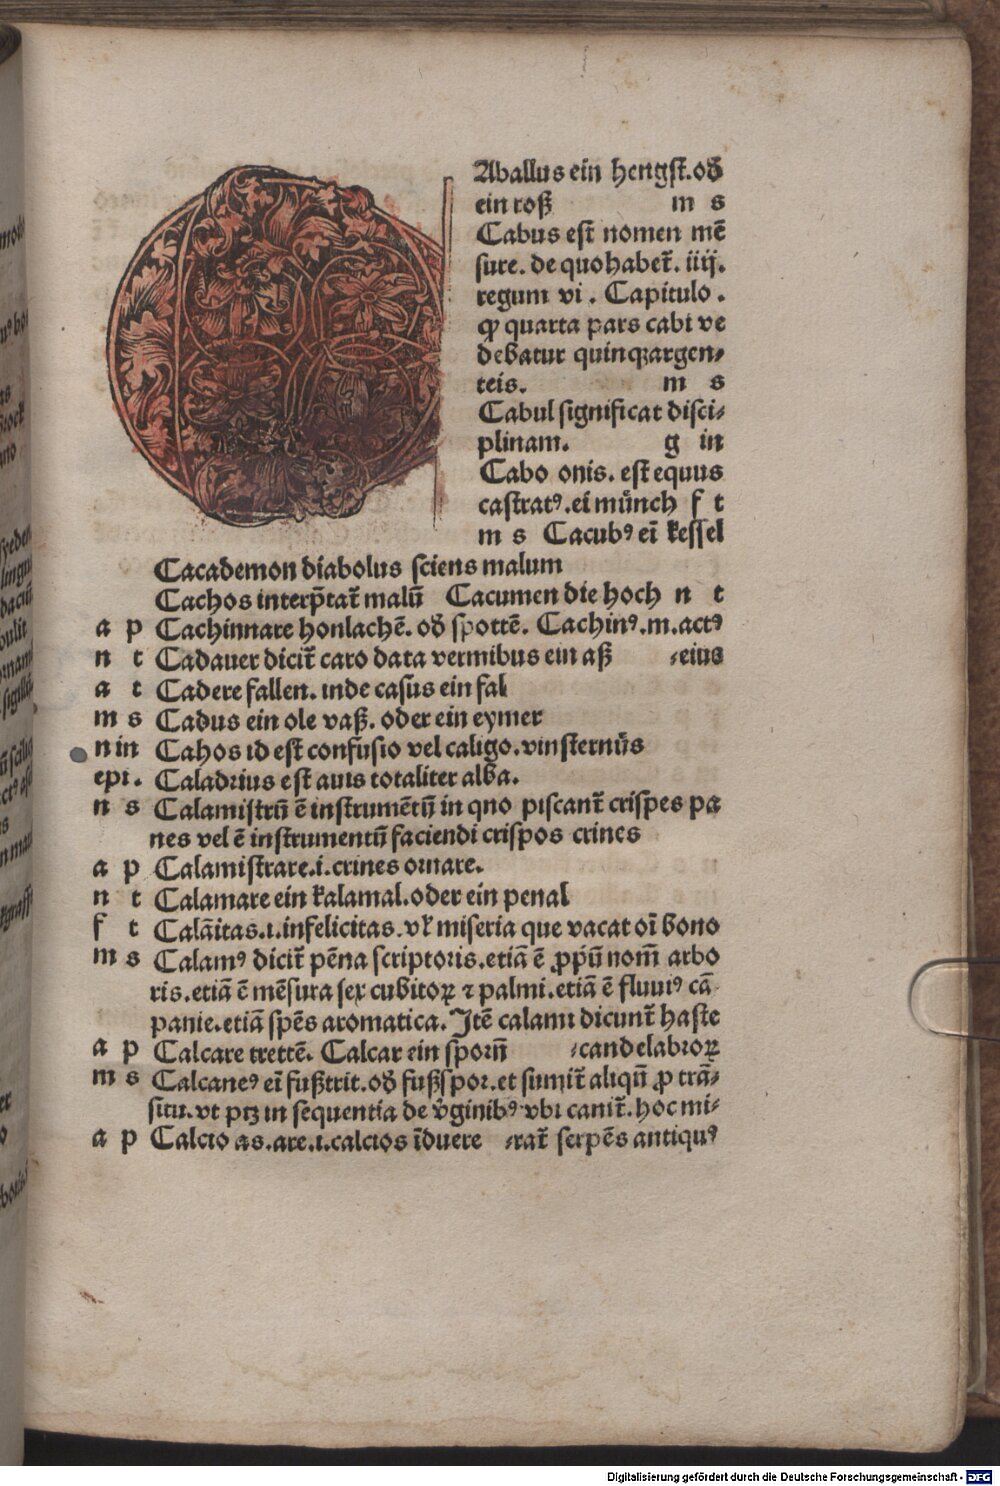 Aballus ein hengst. oď
ein roß m s
Cabus est nomen mē
sure. de quo habet̄. iiij.
regum vi. Capitulo.
ꝙ quarta pars cabi ve
debatur quinqꝫ argen⸗
teis. m s
Cabul significat disci⸗
plinam. g in
Cabo onis. est equus
castratꝰ. ei münch f t
m s Cacubꝰ eī kessel
Cacademon diabolus sciens malum
Cachos interp̄tat̄ malū Cacumen die hoch n t
a p Cachinnare honlachē. oď spottē. Cachinꝰ.m.actꝰ
n t Cadauer dicit̄ caro data vermibus ein aß ⸗eius
a t Cadere fallen. inde casus ein fal
m s Cadus ein ole vaß. oder ein eymer
n in Cahos id est confusio vel caligo. vinsternüs
epi. Caladrius est auis totaliter alba.
n s Calamistrū ē instrumētū in qno piscant̄ crispes pa
nes vel ē instrumentū faciendi crispos crines
a p Calamistrare.i.crines ornare.
n t Calamare ein kalamal. oder ein penal
f t Calāitas.i.infelicitas. vł miseria que vacat oī bono
m s Calamꝰ dicit̄ pēna scriptoris. etiā ē ꝓpū nom̄ arbo
ris. etiā ē mēsura sex cubitoꝝ ⁊ palmi. etiā ē fluuiꝰ cā
panie. etiā spēs aromatica. Itē calami dicunt̄ haste
a p Calcare trettē. Calcar ein sporn̄ ⸗candelabroꝝ
m s Calcaneꝰ eī fußtrit. oď fußspor. et sumit̄ aliqū ꝓ trā⸗
situ. vt ptꝫ in sequentia de v̄ginibꝰ vbi canit̄. hoc mi⸗
a p Calcio as. are.i.calcios īduere ⸗rat̄ serpēs antiquꝰ
Digitalisierung gefördert durch die Deutsche Forschungsgemeinschaft - DFG